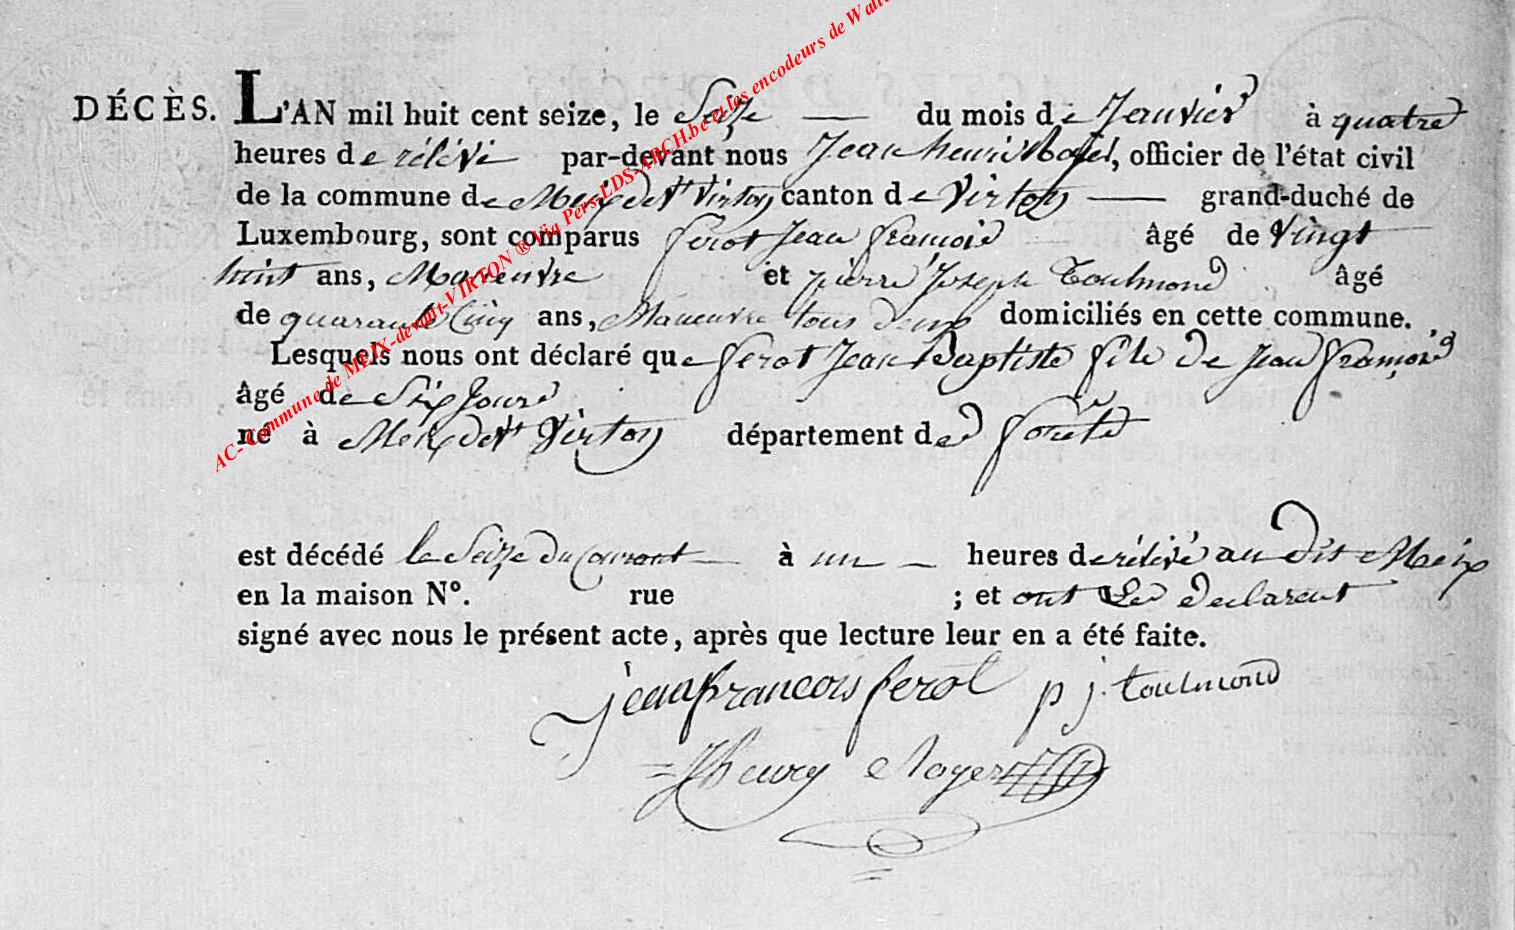 DÉCÈS. L'AN mil huit cent seize, le Seize du mois de Janvier à quatre
heures de rélévé par-devant nous Jean henri Noyer, officier de l'état civil
de la commune de Meix devt Virton canton de Virton grand-duché de
Luxembourg, sont comparus ferot Jean francois âgé de Vingt
huit ans, Maneuvre et pierre Joseph Toulmond âgé
de quarante Cinq ans, Maneuvre tous deux domiciliés en cette commune.
Lesquels nous ont déclaré que ferot Jean Baptiste fils de Jean françois
âgé de Six Jours
né à Meix devt Virton département des forêts
est décédé le Seize du Courant à un heures de rélévé au dit Meix
en la maison No. rue ; et ont Les declarent
signé avec nous le présent acte, après que lecture leur en a été faite.
jean francois ferot p j. toulmond
J henry Noyer
AC- Commune de MEIX-devant-VIRTON ® Via Pers-LDS-ARCH.be et les encodeurs de